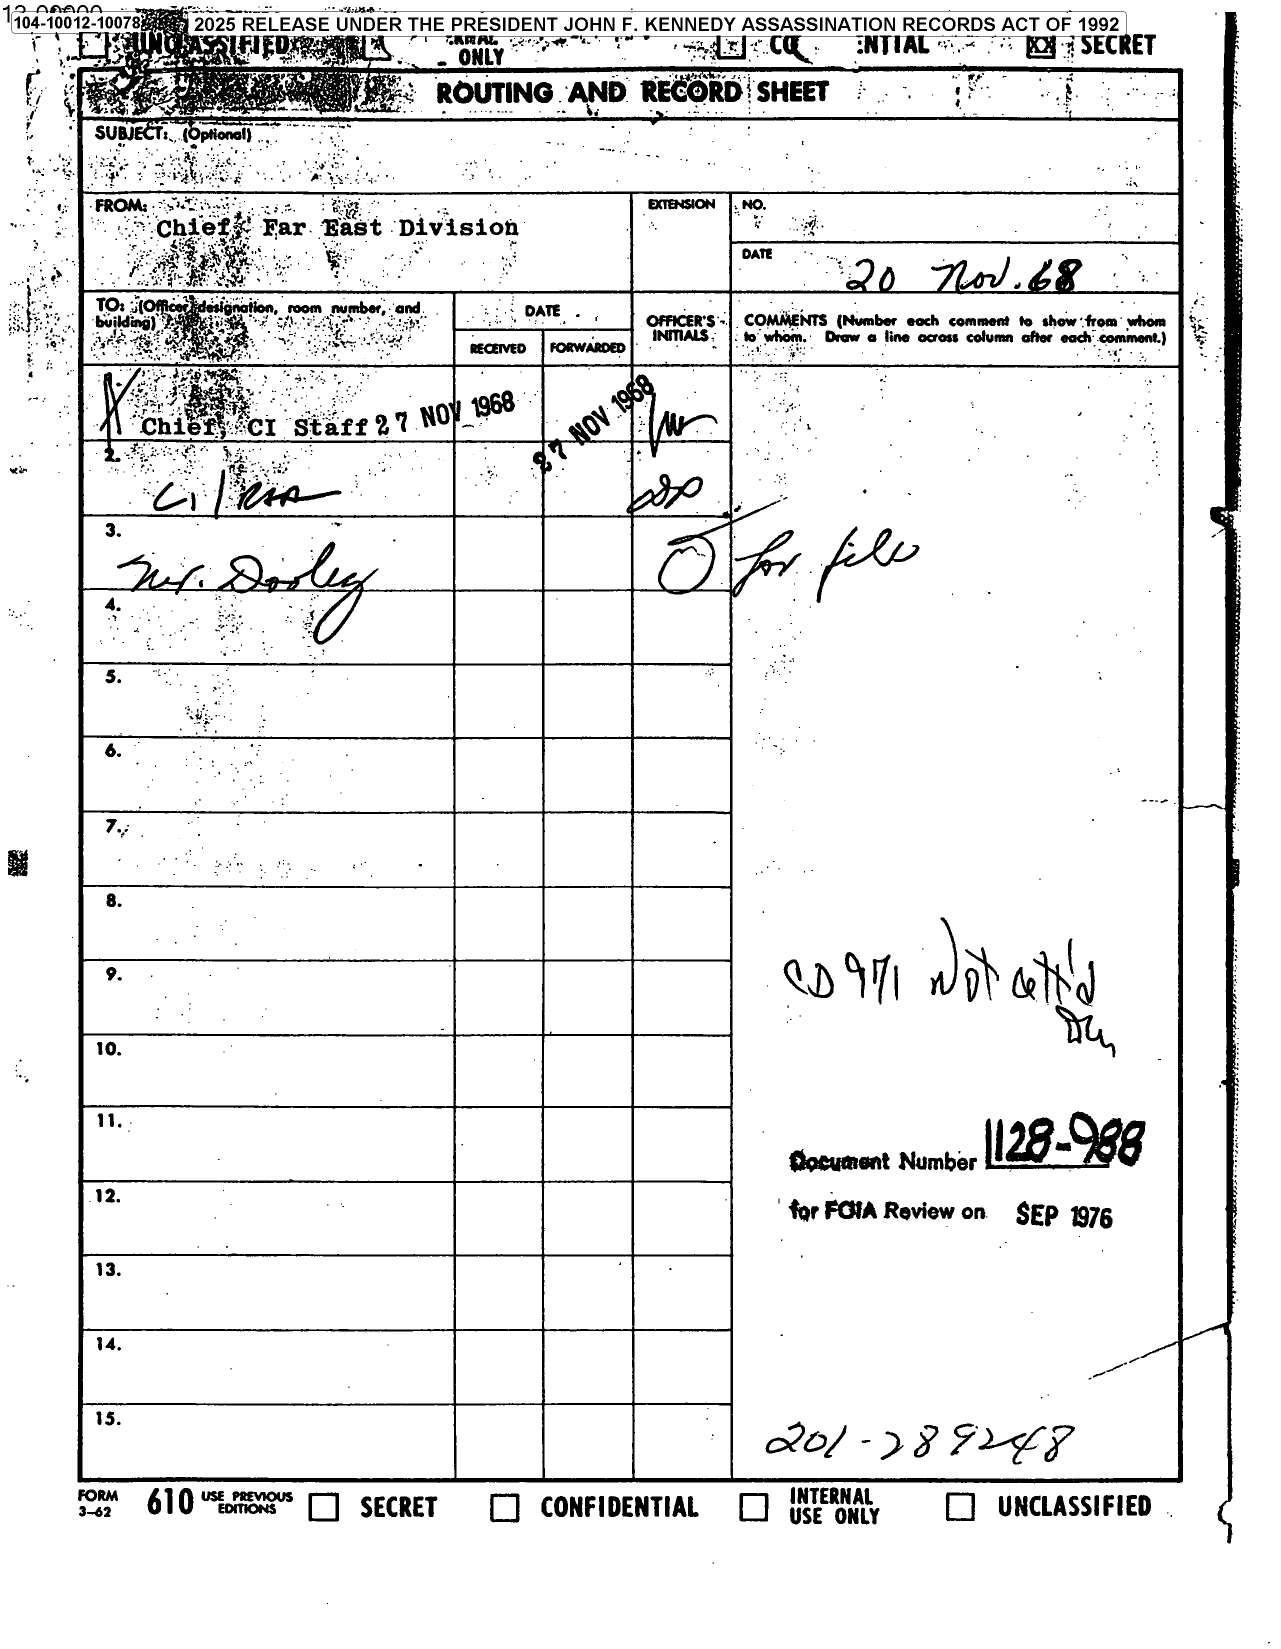 104-10012-10078
2025 RELEASE UNDER THE PRESIDENT JOHN F. KENNEDY ASSASSINATION RECORDS ACT OF 1992
UNCLASSIFIED ONLY SECRET
ROUTING AND RECORD SHEET
SUBJECT: (Optional)
FROM:
Chief, Far East Division
EXTENSION
NO.
DATE
20 Nov. 68
TO: (Officer designation, room number, and
building)
DATE
RECEIVED
FORWARDED
OFFICER'S
INITIALS
COMMENTS (Number each comment to show from whom
to whom. Draw a line across column after each comment.)
Chief, CI Staff
27 NOV 1968
27 NOV 1968
2.
CI/R&A
3.
Mr. Dooley
for file
4.
5.
6.
7.
8.
9.
CD 971 Not att'd
10.
11.
Document Number 1128-988
12.
for FOIA Review on SEP 1976
13.
14.
15.
201-289248
FORM
3-62
610
USE PREVIOUS
EDITIONS
SECRET
CONFIDENTIAL
INTERNAL
USE ONLY
UNCLASSIFIED